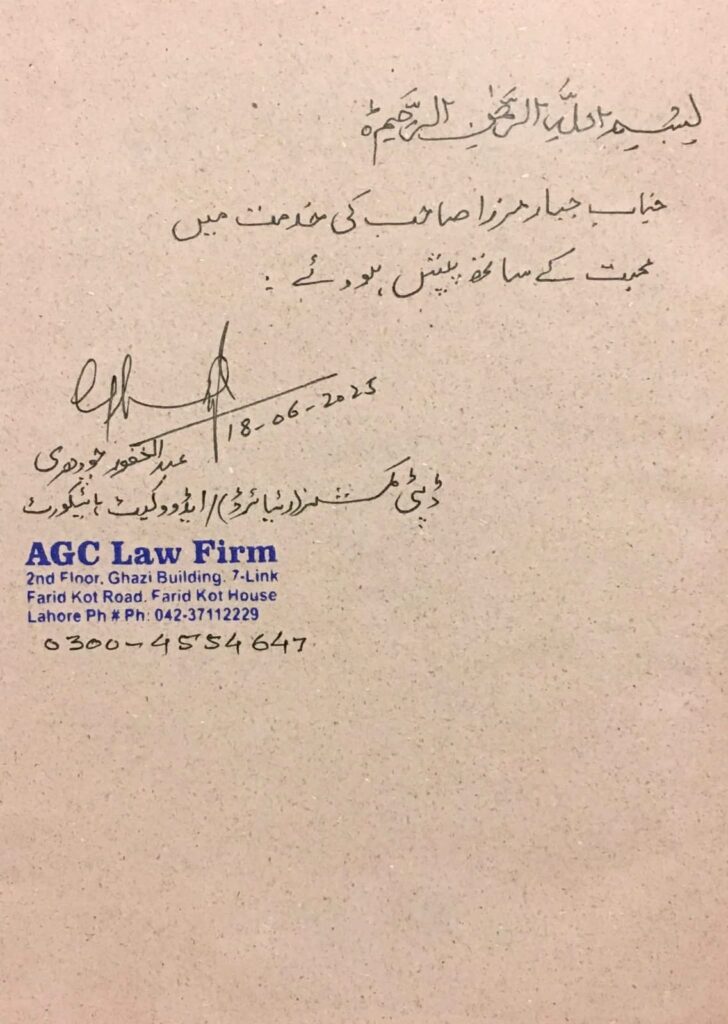 بِسْمِ اللَّهِ الرَّحْمٰنِ الرَّحِيمِ ہ
جناب جبار مرزا صاحب کی خدمت میں
محبت کے ساتھ پیش ہوئے :
18-06-2025
عبدالغفور چوہدری
ڈپٹی کمشنر (ریٹائرڈ) / ایڈووکیٹ ہائیکورٹ
AGC Law Firm
2nd Floor, Ghazi Building, 7-Link
Farid Kot Road, Farid Kot House
Lahore Ph # Ph: 042-37112229
0300-4554647